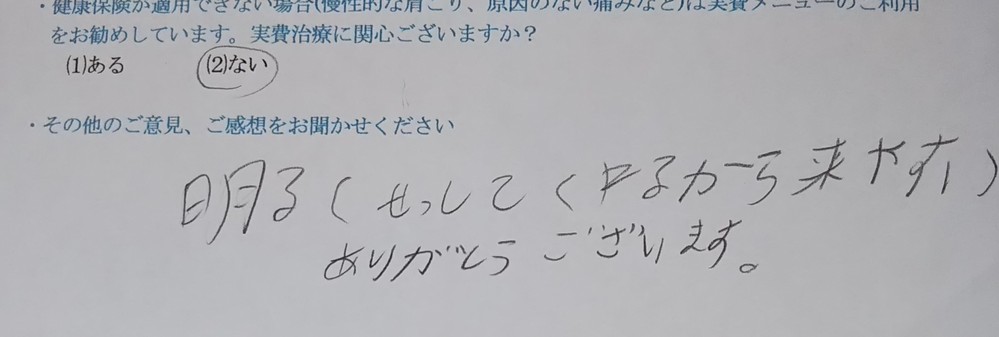 ・健康保険が適用できない場合(慢性的な肩こり、原因のない痛みなど)は実費メニューのご利用
をお勧めしています。実費治療に関心ございますか？
(1)ある　(2)ない
・その他のご意見、ご感想をお聞かせください
明るくせっしてくれるから来やすい
ありがとうございます。